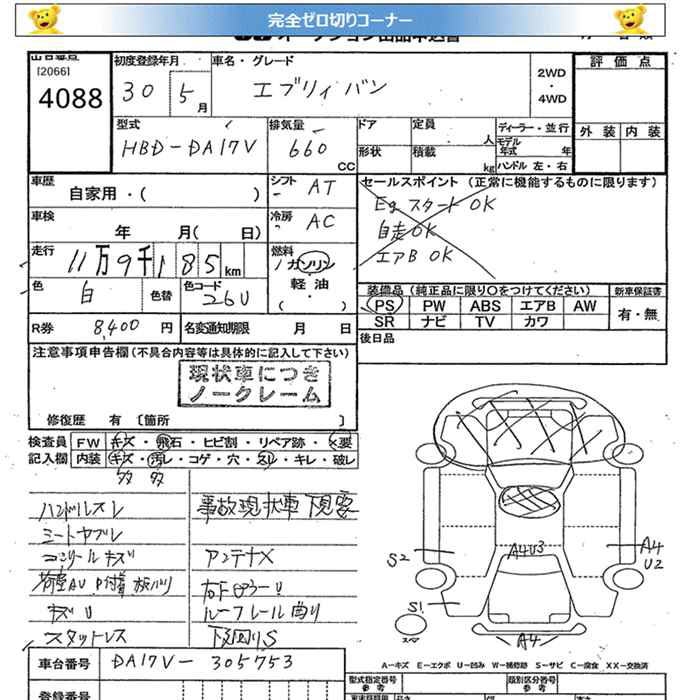 完全ゼロ切りコーナー
オークション出品申込書
出品番号
[2066]
4088
初度登録年月
30 5月
車名・グレード
エブリィ バン
2WD
・
4WD
評価点
外装 内装
型式
HBD-DA17V
排気量
660 CC
ドア
定員 人
形状
積載 kg
ディーラー・並行
モデル年式 年
ハンドル 左・右
車歴
自家用・( )
シフト AT
車検
年 月( 日)
冷房 AC
セールスポイント (正常に機能するものに限ります)
Eg スタート OK
自走 OK
エアB OK
走行
11万9千185km
燃料
ガソリン
軽油
( ・ )
色
白
色替
色コード
26U
R券 8,400 円
名変通知期限 月 日
装備品(純正品に限り○をつけてください)
PS PW ABS エアB AW
SR ナビ TV カワ
新車保証書
有・無
後日品
注意事項申告欄(不具合内容等は具体的に記入して下さい)
現状車につき
ノークレーム
修復歴 有 〔箇所 〕
検査員
記入欄
FW キズ・飛石・ヒビ割・リペア跡・×要
内装 キズ・汚レ・コゲ・穴・スリ・キレ・破レ
多 多
ハンドルスレ
シートヤブレ
コンソールキズ
キズU
スタットレス
事故現状車 下見要
アンテナX
ルーフレール曲り
下回りS
A4U3
S2
S1
A4
U2
A4
スペア
A-キズ E-エクボ U-凹み W-補修跡 S-サビ C-腐食 XX-交換済
車台番号 DA17V-305753
登録番号
型式指定番号
参考
類別区分番号
参考